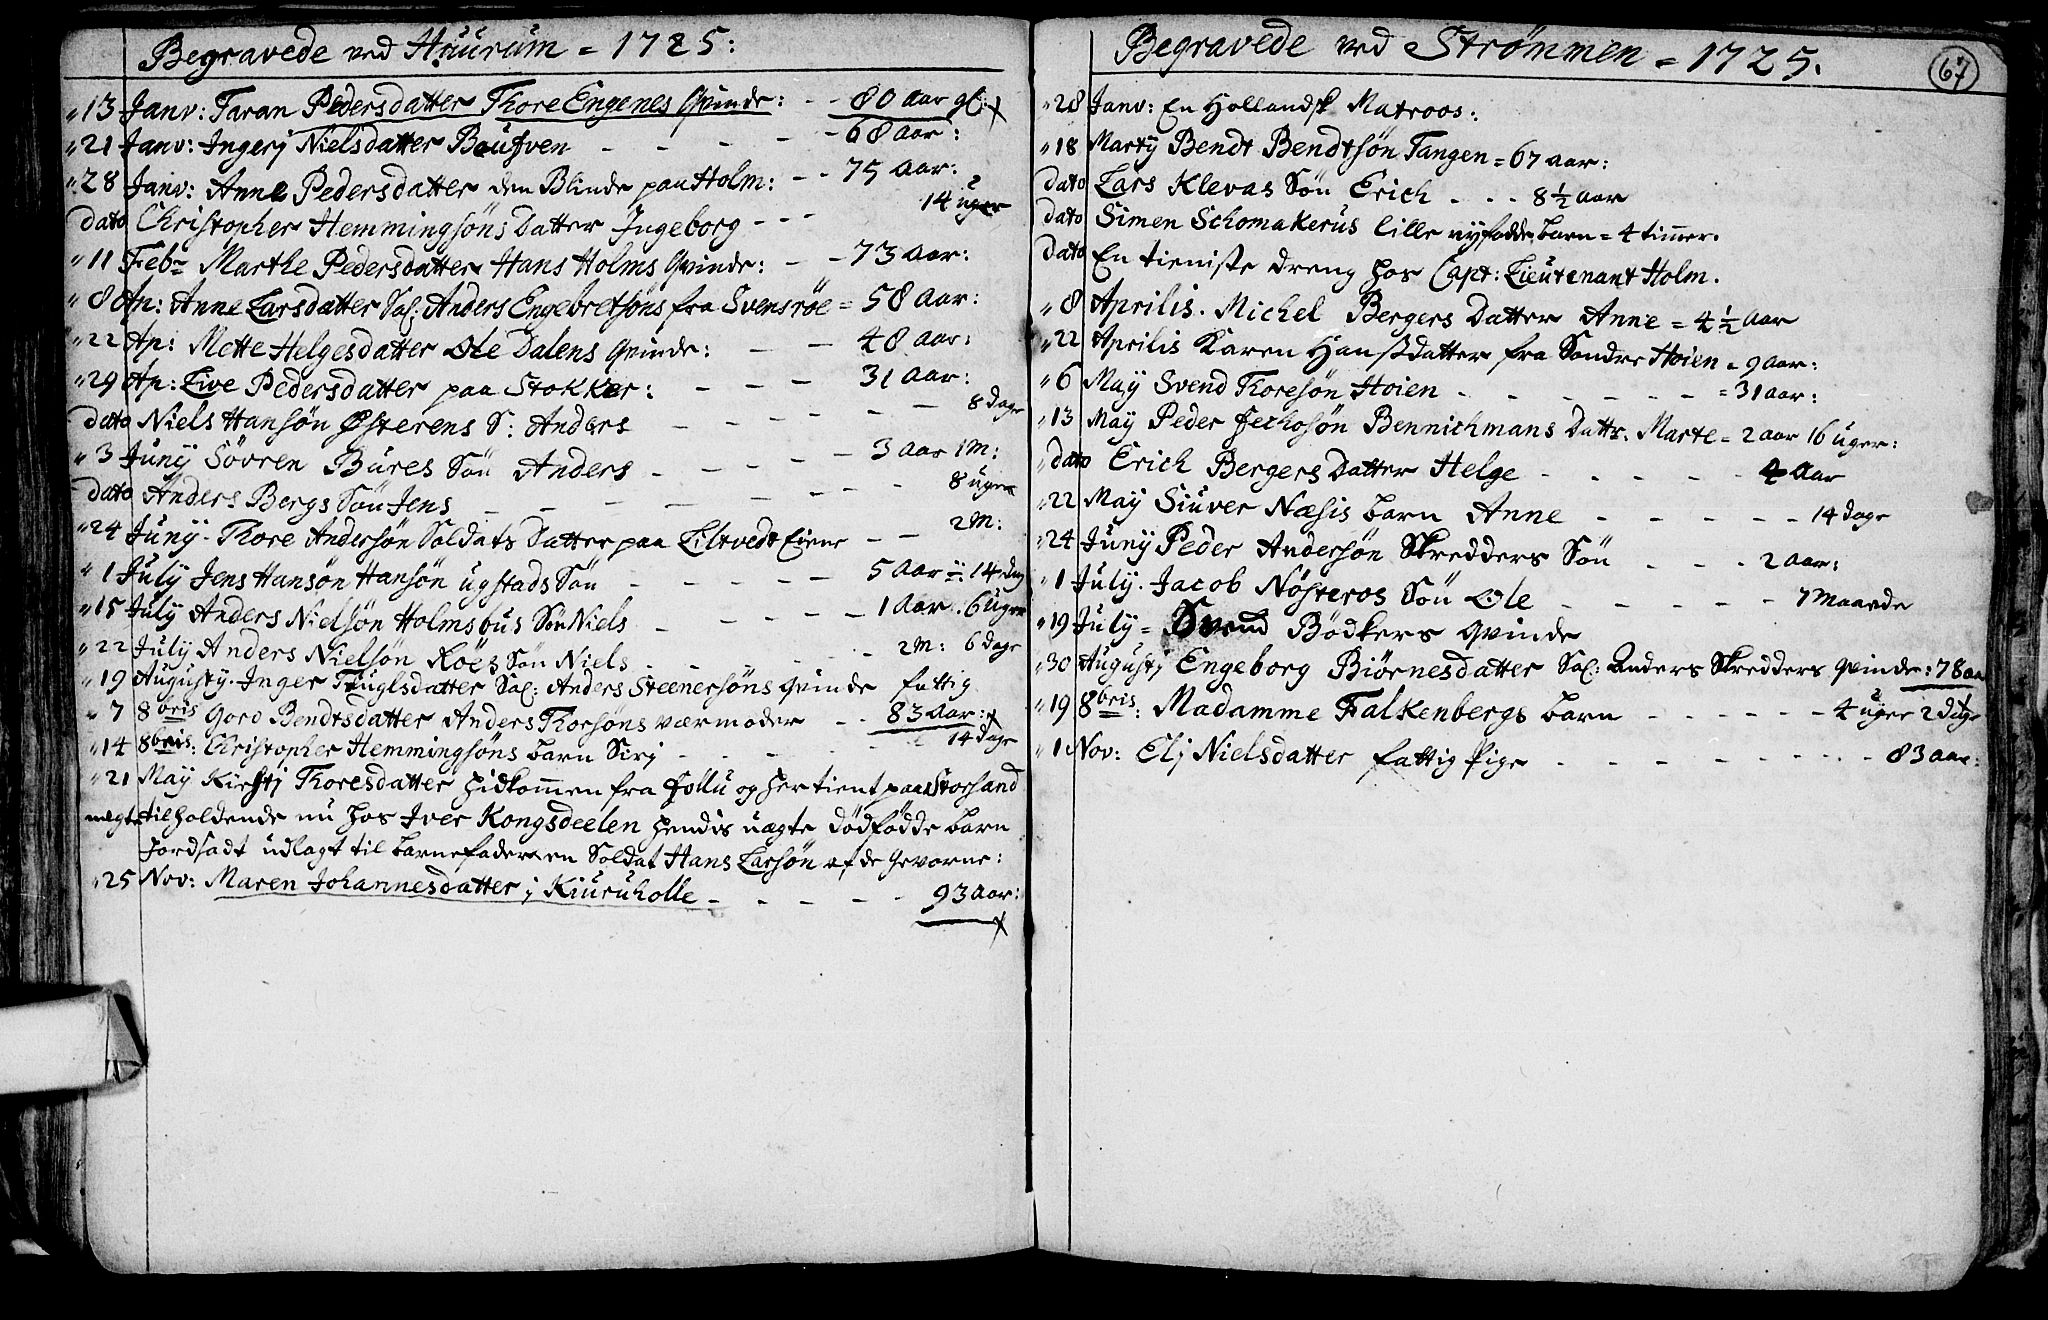 Begravede ved Húúrúm = 1725:
13 Janv: Taran Pedersdatter Thore Engenes Qvinde: - - 80 aar gl:
21 Janv: Ingerj Nielsdatter - - - - 68 aar:
28 Janv: Anne Pedersdatter den Blinde paa Holm: - - 75 aar:
dato Christopher Hemmingsöns Datter Ingeborg - - - 14 uger
11 Febr Marthe Pedersdatter Hans Holms Qvinde: - - 73 aar:
8 Ap: Anne Larsdatter Sal: Anders Engebretsöns fra Svensröe = 58 aar:
22 Ap: Mette Helgesdatter Ole Dalens Qvinde: - - 48 aar:
29 Ap: Live Pedersdatter paa Stokker: - - - 31 aar:
dato Niels Hansön Østerens S: Anders - - - - - 8 dage
3 Junij Sövren Büres Sön Anders - - - - - 3 aar 1 M:
dato Anders Bergs Sön Jens - - - - - - 8 uger
24 Junij. Thore Andersön Soldats Datter paa Liltvedt Eiene - - 2 M:
1 July Jens Hansön Hansön ugstads Sön - - - - - 5 aar = 14 dag
15 July Anders Nielsön Holmsbus Sön Niels - - - - - 1 aar. 6 uger
22 July Anders Nielsön Röes Sön Niels - - - - - 2 M: 6 dage
19 Augustj. Inger Fuglsdatter Sal: Anders Steenersöns Qvinde fattig
7 8bris Goro Bendtsdatter Anders Thorsöns værmoder - - 83 aar:
14 8bris: Christopher Hemmingsöns barn Sirj - - - - 14 dage
21 May Kirstj Thoresdatter hidkommen fra follu og her tient paa Storsand
tilholdende nu hos Iver Kongsdeelen hendis uægte dödfödde barn
Jordsadt udlagt til barnefader en Soldat Hans Larsön af de Gevorne:
25 Nov: Maren Johannesdatter j Kiuruholle - - - - - 93 aar:
Begravede ved Strömmen = 1725.
67
28 Janv: En Hollandsk Matroos:
18 Martij Bendt Bendtsön Tangen = 67 aar:
dato Lars Klevas Sön Erich - - - 8 1/2 aar
dato Simen Schomakerus lille nyfödde barn = 4 timer.
dato En tieniste dreng hos Capt: Lieutenant Holm.
8 Aprilis. Michel Bergers Datter Anne = 4 1/2 aar
22 Aprilis Karen Hansdatter fra Sondre Hoien = 9 aar:
6 Maij Svend Thoresön Hoien - - - - - - = 31 aar:
13 May Peder Bennichmans Dattr. Marte = 2 aar 16 uger:
dato Erich Bergers Datter Helge - - - - - 4 aar
22 May Siuver Næsis barn Anne - - - - - 14 dage
24 Junij Peder Andersön Skredders Sön - - - 2 aar:
1 July. Jacob Nösteros Sön Ole - - - - - 7 maande
19 July = Svend Bödkers Qvinde
30 Augustj Engeborg Biörnesdatter Sal: Anders Skredders Qvinde: 78 aa
19 8bris: Madamme Falkenbergs barn - - - - - - 4 uger 2 dage
1 Nov: Elj Nielsdatter fattig Pige - - - - - - - - 83 aar: